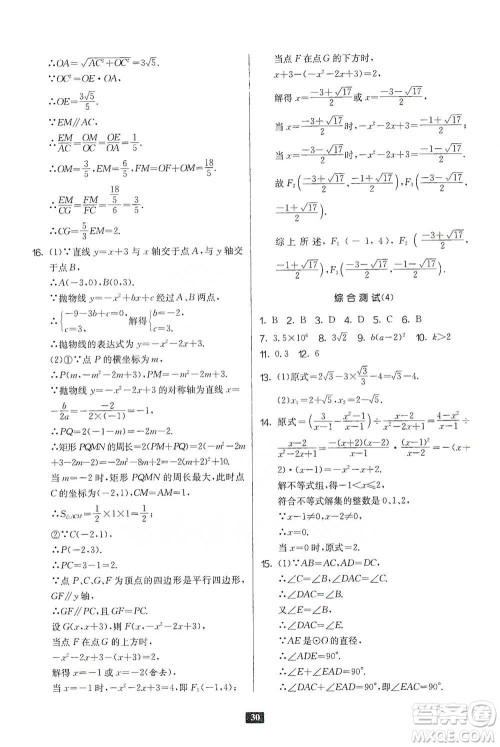 ∴OA=√(AC²+OC²)=3√5.
∵OC²=OE·OA,
∴OE=3√5/5.
∵EM∥AC,
∴EM/AC=OM/OC=OE/OA=1/5.
∴OM=3/5,EM=6/5,FM=OF+OM=18/5.
∴EM/CG=FM/FC=(18/5)/6=3/5.
∴CG=5/3EM=2.
16. (1)∵直线 y=x+3 与 x 轴交于点 A,与 y 轴交
于点 B,
∴A(-3,0),B(0,3).
∵抛物线 y=-x²+bx+c 经过 A、B 两点,
∴{-9-3b+c=0, c=3. 解得{b=-2, c=3.
∴抛物线的表达式为 y=-x²-2x+3.
(2)①∵点 P 的横坐标为 m,
∴P(m,-m²-2m+3),PM=-m²-2m+3.
∵抛物线 y=-x²-2x+3 的对称轴为直线 x=
-b/2a=--2/(2×(-1))=-1,
∴PQ=2(-1-m)=-2m-2.
∴矩形 PQMN 的周长=2(PM+PQ)=2(-m²-2m
+3-2m-2)=-2m²-8m+2=-2(m+2)²+10.
∴当 m=-2 时,矩形 PQMN 的周长最大,此时
点 C 的坐标为(-2,1),CM=AM=1.
∴S△ACM=1/2×1×1=1/2.
②∵C(-2,1),
∴P(-2,3).
∴PC=3-1=2.
∵点 P、C、G、F 为顶点的四边形是平行四边形,
GF∥y 轴,
∴GF∥PC,且 GF=PC.
设 G(x,x+3),则 F(x,-x²-2x+3),
当点 F 在点 G 的上方时,
-x²-2x+3-(x+3)=2,
解得 x=-1 或 x=-2(舍去),
当 x=-1 时,-x²-2x+3=4,即 F₁(-1,4).
当点 F 在点 G 的下方时,
x+3-(-x²-2x+3)=2,
解得 x=(-3+√17)/2 或 x=(-3-√17)/2.
当 x=(-3+√17)/2 时,-x²-2x+3=(-1-√17)/2,
当 x=(-3-√17)/2 时,-x²-2x+3=(-1+√17)/2.
故 F₂((-3+√17)/2,(-1-√17)/2),F₃((-3-√17)/2,
(-1+√17)/2).
综上所述,F(-1,4)或((-3+√17)/2,(-1-√17)/2)
或((-3-√17)/2,(-1+√17)/2).
综合测试(4)
1. B 2. B 3. A 4. D 5. C 6. B
7. 3.5×10⁶ 8. 3√2 9. b(a-2)² 10. k>2
11. 0.3 12. 6
14. 原式=(3/(x-1)-(x²-1)/(x-1))÷(x-2)/(x²-2x+1)=(4-x²)/(x-1)·
(x²-2x+1)/(x-2)=-(x+2)(x-2)/(x-1)·(x-1)²/(x-2)=-(x+
2)·(x-1)=-x²-x+2.
解不等式组,得-1<x≤2,
符合不等式解集的整数是 0,1,2.
∵x-1≠0,x-2≠0,
∴当 x=0 时,原式=2.
15. (1)∵AC=AD,AD=DC,
∴∠C=∠B,∠DAC=∠C.
∴∠DAC=∠B.
又∵∠E=∠B,
∴∠DAC=∠E.
∵AE 是⊙O 的直径,
∴∠ADE=90°.
∴∠E+∠EAD=90°.
∴∠DAC+∠EAD=90°,即∠EAC=90°.
30